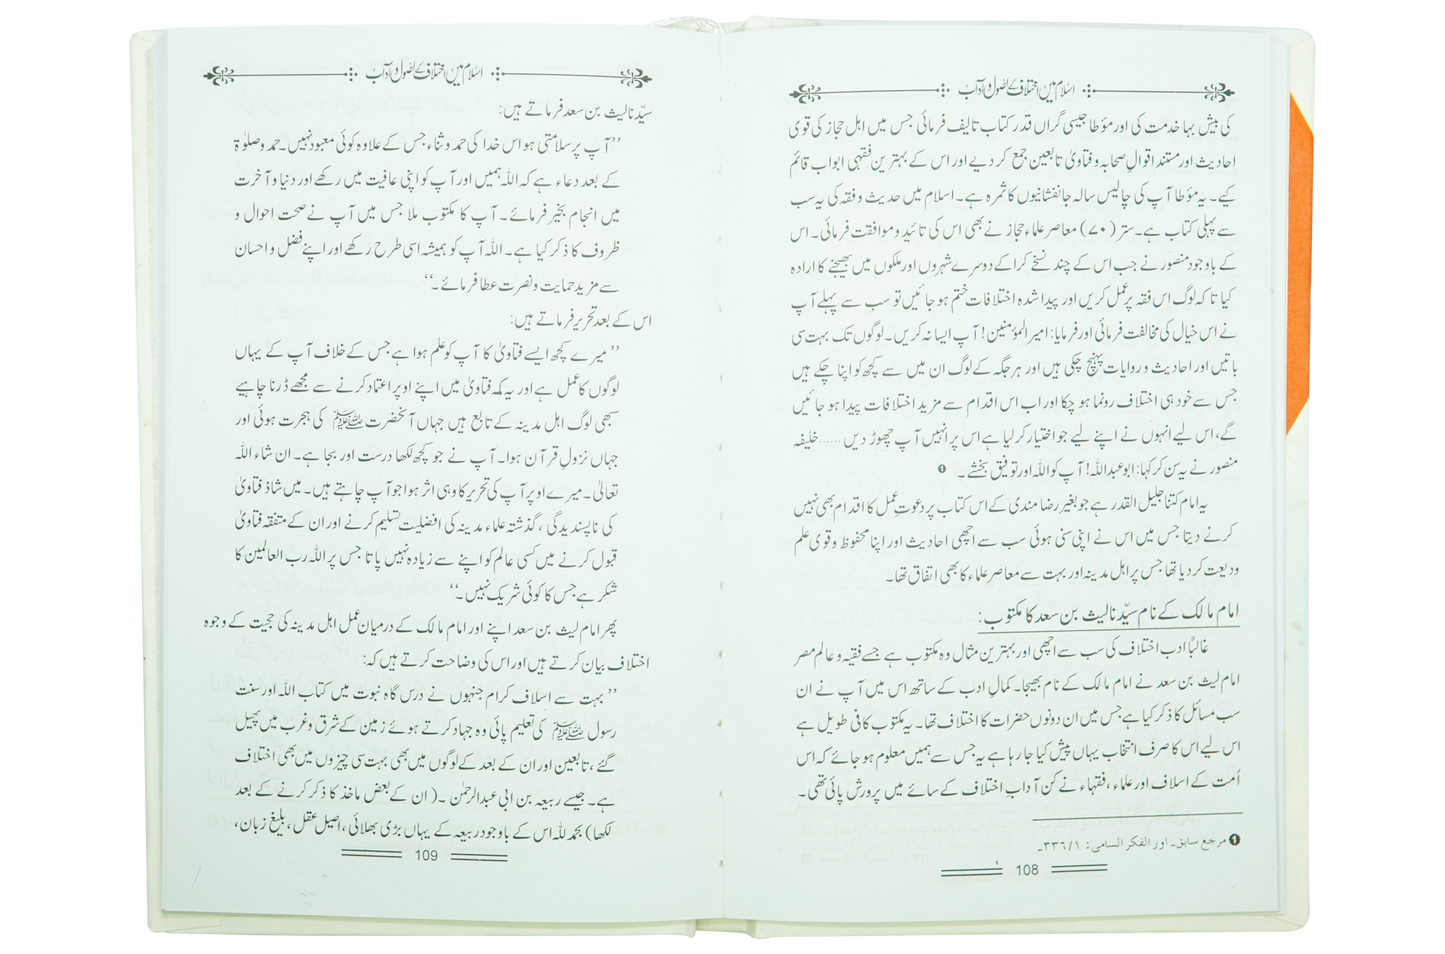 اسلام میں اختلاف کے اصول و آداب
کی بیش بہا خدمت کی اور مؤطا جیسی گراں قدر کتاب تالیف فرمائی جس میں اہل حجاز کی قوی
احادیث اور مستند اقوالِ صحابہ و فتاویٰ تابعین جمع کر دیے اور اس کے بہترین فقہی ابواب قائم
کیے۔ یہ مؤطا آپ کی چالیس سالہ جانفشانیوں کا ثمرہ ہے۔ اسلام میں حدیث و فقہ کی یہ سب
سے پہلی کتاب ہے۔ ستر (۷۰) معاصر علماء حجاز نے بھی اس کی تائید و موافقت فرمائی۔ اس
کے باوجود منصور نے جب اس کے چند نسخے کرا کے دوسرے شہروں اور ملکوں میں بھیجنے کا ارادہ
کیا تا کہ لوگ اس فقہ پر عمل کریں اور پیدا شدہ اختلافات ختم ہو جائیں تو سب سے پہلے آپ
نے اس خیال کی مخالفت فرمائی اور فرمایا: امیر المؤمنین! آپ ایسا نہ کریں۔ لوگوں تک بہت سی
باتیں اور احادیث و روایات پہنچ چکی ہیں اور ہر جگہ کے لوگ ان میں سے کچھ کو اپنا چکے ہیں
جس سے خود ہی اختلاف رونما ہو چکا اور اب اس اقدام سے مزید اختلافات پیدا ہو جائیں
گے، اس لیے انہوں نے اپنے لیے جو اختیار کر لیا ہے اس پر انہیں آپ چھوڑ دیں ...... خلیفہ
منصور نے یہ سن کر کہا: ابو عبداللہ! آپ کو اللہ اور توفیق بخشے۔ ❶
یہ امام کتنا جلیل القدر ہے جو بغیر رضا مندی کے اس کتاب پر دعوتِ عمل کا اقدام بھی نہیں
کرنے دیتا جس میں اس نے اپنی سنی ہوئی سب سے اچھی احادیث اور اپنا محفوظ و قوی علم
ودیعت کر دیا تھا جس پر اہل مدینہ اور بہت سے معاصر علماء کا بھی اتفاق تھا۔
امام مالک کے نام سیّدنا لیث بن سعد کا مکتوب:
غالباً ادب اختلاف کی سب سے اچھی اور بہترین مثال وہ مکتوب ہے جسے فقیہ و عالم مصر
امام لیث بن سعد نے امام مالک کے نام بھیجا۔ کمالِ ادب کے ساتھ اس میں آپ نے ان
سب مسائل کا ذکر کیا ہے جس میں ان دونوں حضرات کا اختلاف تھا۔ یہ مکتوب کافی طویل ہے
اس لیے اس کا صرف انتخاب یہاں پیش کیا جا رہا ہے یہ جس سے ہمیں معلوم ہو جائے کہ اس
اُمت کے اسلاف اور علماء، فقہاء نے کن آدابِ اختلاف کے سائے میں پرورش پائی تھی۔
❶ مرجع سابق۔ اور الفکر السامی: ۱/۳۳٦۔
108
اسلام میں اختلاف کے اصول و آداب
سیّدنا لیث بن سعد فرماتے ہیں:
’’آپ پر سلامتی ہو اس خدا کی حمد و ثناء جس کے علاوہ کوئی معبود نہیں۔ حمد و صلوٰۃ
کے بعد دعاء ہے کہ اللہ ہمیں اور آپ کو اپنی عافیت میں رکھے اور دنیا و آخرت
میں انجام بخیر فرمائے۔ آپ کا مکتوب ملا جس میں آپ نے صحت احوال و
ظروف کا ذکر کیا ہے۔ اللہ آپ کو ہمیشہ اسی طرح رکھے اور اپنے فضل و احسان
سے مزید حمایت و نصرت عطا فرمائے۔‘‘
اس کے بعد تحریر فرماتے ہیں:
’’میرے کچھ ایسے فتاویٰ کا آپ کو علم ہوا ہے جس کے خلاف آپ کے یہاں
لوگوں کا عمل ہے اور یہ کہ فتاویٰ میں اپنے اوپر اعتماد کرنے سے مجھے ڈرنا چاہیے
سبھی لوگ اہل مدینہ کے تابع ہیں جہاں آنحضرت ﷺ کی ہجرت ہوئی اور
جہاں نزولِ قرآن ہوا۔ آپ نے جو کچھ لکھا درست اور بجا ہے۔ ان شاء اللہ
تعالٰی۔ میرے اوپر آپ کی تحریر کا وہی اثر ہوا جو آپ چاہتے ہیں۔ میں شاذ فتاویٰ
کی ناپسندیدگی، گذشتہ علماء مدینہ کی افضلیت تسلیم کرنے اور ان کے متفقہ فتاویٰ
قبول کرنے میں کسی عالم کو اپنے سے زیادہ نہیں پاتا جس پر اللہ رب العالمین کا
شکر ہے جس کا کوئی شریک نہیں۔‘‘
پھر امام لیث بن سعد اپنے اور امام مالک کے درمیان عمل اہل مدینہ کی حجیت کے وجوہ
اختلاف بیان کرتے ہیں اور اس کی وضاحت کرتے ہیں کہ:
’’بہت سے اسلاف کرام جنہوں نے درس گاہ نبوت میں کتاب اللہ اور سنت
رسول ﷺ کی تعلیم پائی وہ جہاد کرتے ہوئے زمین کے شرق و غرب میں پھیل
گئے، تابعین اور ان کے بعد کے لوگوں میں بھی بہت سی چیزوں میں بھی اختلاف
ہے۔ جیسے ربیعہ بن ابی عبدالرحمٰن۔ (ان کے بعض ماخذ کا ذکر کرنے کے بعد
لکھا) بحمد للہ اس کے باوجود ربیعہ کے یہاں بڑی بھلائی، اصیل عقل، بلیغ زبان،
109